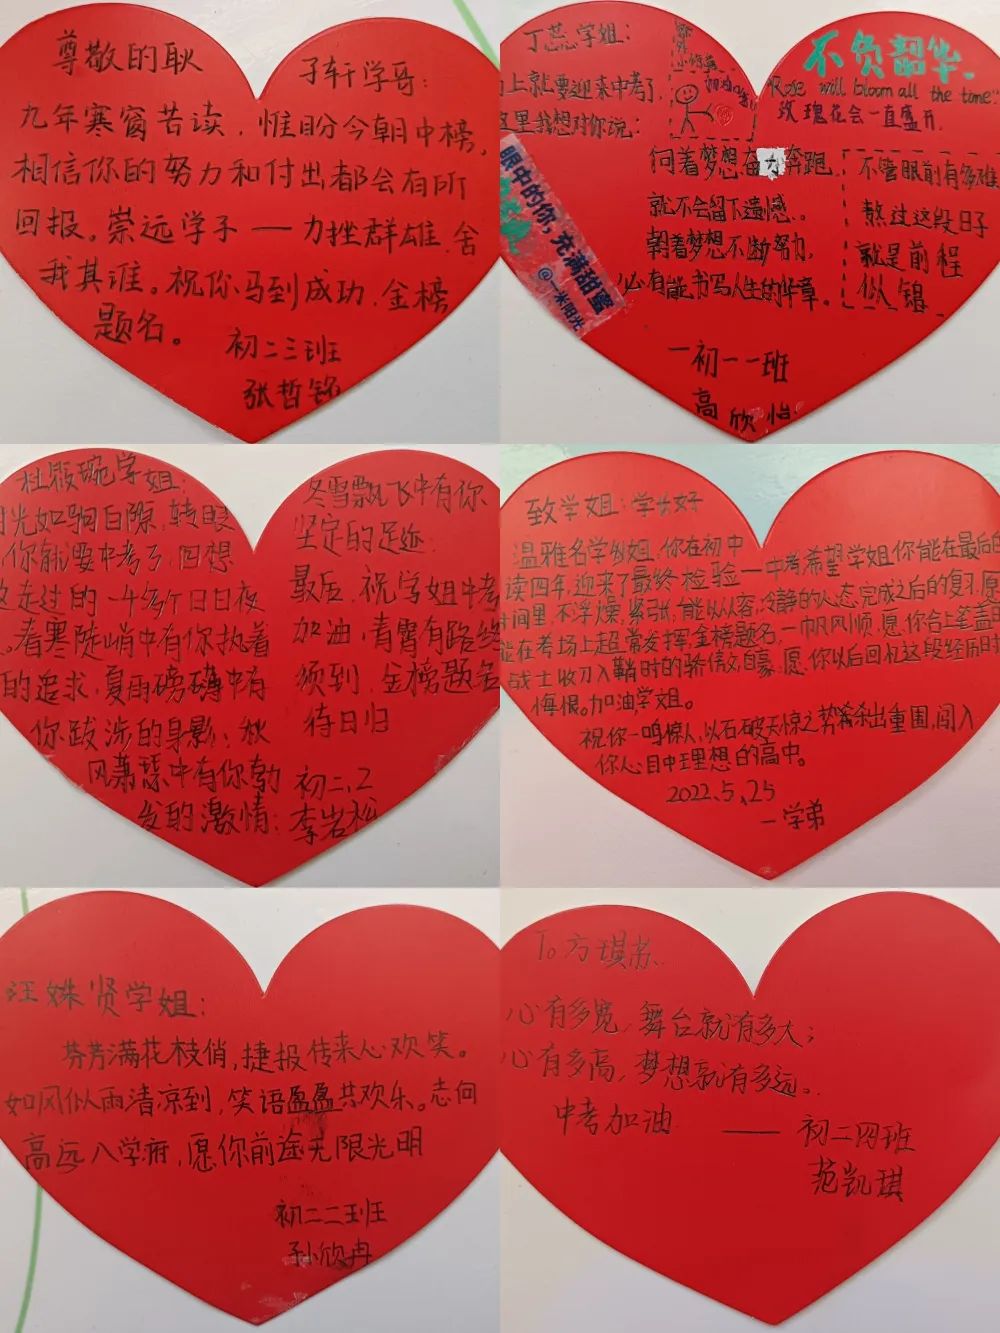 尊敬的耿子轩学哥：
九年寒窗苦读，惟盼今朝中榜，
相信你的努力和付出都会有所
回报。崇远学子——力挫群雄，舍
我其谁。祝你马到成功，金榜
题名。
初二三班
张哲铭
丁蕊学姐：
上就要迎来中考了，
这里我想对你说：
加油
不负韶华
"Rose will bloom all the time"
玫瑰花会一直盛开
向着梦想奋力奔跑
就不会留下遗憾。
朝着梦想不断努力，
必有能书写人生的华章。
不管眼前有多难
熬过这段日子
就是前程
似锦
眼中的你，充满甜蜜
@一米阳光
一初一一班
高欣怡
学姐：
光如驹白隙，转眼
你就要中考了，回想
走过的一个多个日日夜
春寒陡峭中有你执着
的追求，夏雨磅礴中有
你跋涉的身影；秋
风萧瑟中有你勃
发的激情；
冬雪飘飞中有你
坚定的足迹
最后，祝学姐中考
加油，青霄有路终
须到，金榜题名
待日归
初二、2
李岩松
致学姐：学长好
温雅名学姐，你在初中
读四年，迎来了最终检验—中考，希望学姐你能在最后的
时间里，不浮燥，紧张，能以从容，冷静的心态完成之后的复习，愿
能在考场上超常发挥，金榜题名，一帆风顺，愿你合上笔盖
战士收刀入鞘时的骄傲与自豪，愿你以后回忆这段经历时
悔恨。加油，学姐。
祝你一鸣惊人，以石破天惊之势杀出重围，闯入
你心目中理想的高中。
2022、5、25
—学弟
汪姝贤学姐：
芬芳满花枝俏，捷报传来心欢笑。
如风似雨清凉到，笑语盈盈共欢乐。志向
高远八学府，愿你前途无限光明
初二二班
孙欣冉
To 方琪
心有多宽，舞台就有多大；
心有多高，梦想就有多远。
中考加油
—— 初二四班
范凯琪